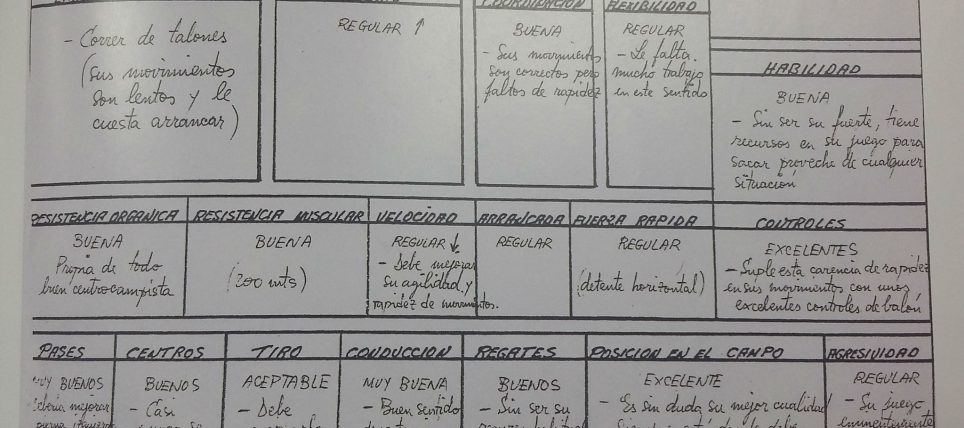 COORDINACION
FLEXIBILIDAD
- Correr de talones
(sus movimientos
son lentos y le
cuesta arrancar)
REGULAR ↑
BUENA
- Sus movimientos
son correctos pero
faltos de rapidez
REGULAR
- Le falta
mucho trabajo
en este sentido
HABILIDAD
BUENA
- Sin ser su fuerte, tiene
recursos en su juego para
sacar provecho de cualquier
situación
RESISTENCIA ORGANICA
BUENA
Propia de todo
buen centrocampista
RESISTENCIA MUSCULAR
BUENA
(200 mts)
VELOCIDAD
REGULAR ↓
- Debe mejorar
su agilidad y
rapidez de movimientos.
ARRANCADA
REGULAR
FUERZA RAPIDA
REGULAR
(detente horizontal)
CONTROLES
EXCELENTES
- Suple esta carencia de rapidez
en sus movimientos con unos
excelentes controles de balón
PASES
MUY BUENOS
Debería mejorar
pierna izquierda
CENTROS
BUENOS
- Casi
TIRO
ACEPTABLE
- Debe
CONDUCCION
MUY BUENA
- Buen sentido
REGATES
BUENOS
- Sin ser su
POSICION EN EL CAMPO
EXCELENTE
- Es sin duda su mejor cualidad
AGRESIVIDAD
REGULAR
- Su juego
eminentemente